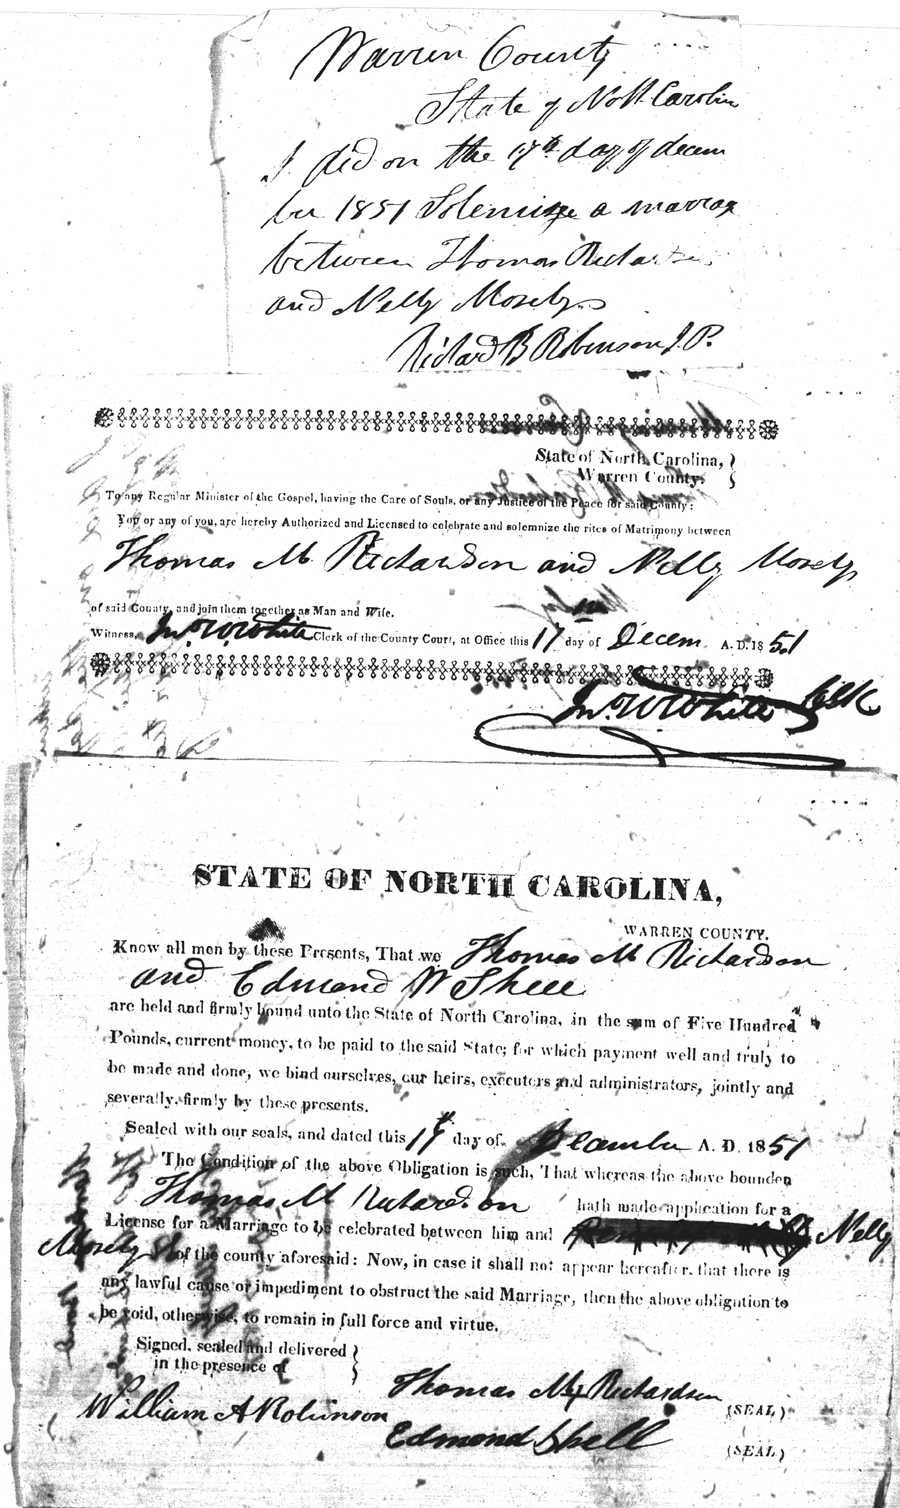 Warren County
State of North Carolin
I did on the 17th day of decem
ber 1851 Solemize a marrag
between Thomas Richardson
and Nelly Mosely
Richard B Robinson J. P.
State of North Carolina,
Warren County.
To any Regular Minister of the Gospel, having the Care of Souls, or any Justice of the Peace for said County:
You or any of you, are hereby Authorized and Licensed to celebrate and solemnize the rites of Matrimony between
Thomas M Richardson and Nelly Mosely
of said County, and join them together as Man and Wife.
Witness, Jno. W White Clerk of the County Court, at Office this 17 day of Decem A. D. 1851
Jno. W White Clk
STATE OF NORTH CAROLINA,
WARREN COUNTY.
Know all men by these Presents, That we Thomas M Richardson
and Edmond W Shell
are held and firmly bound unto the State of North Carolina, in the sum of Five Hundred
Pounds, current money, to be paid to the said State; for which payment well and truly to
be made and done, we bind ourselves, our heirs, executors and administrators, jointly and
severally, firmly by these presents.
Sealed with our seals, and dated this 17th day of December A. D. 1851
The Condition of the above Obligation is such, That whereas the above bounden
Thomas M Richardson hath made application for a
License for a Marriage to be celebrated between him and Nelly
Mosely of the county aforesaid: Now, in case it shall not appear hereafter, that there is
any lawful cause or impediment to obstruct the said Marriage, then the above obligation to
be void, otherwise, to remain in full force and virtue.
Signed, sealed and delivered
in the presence of
Thomas M x Richardson (SEAL)
William A Robinson
Edmond Shell (SEAL)